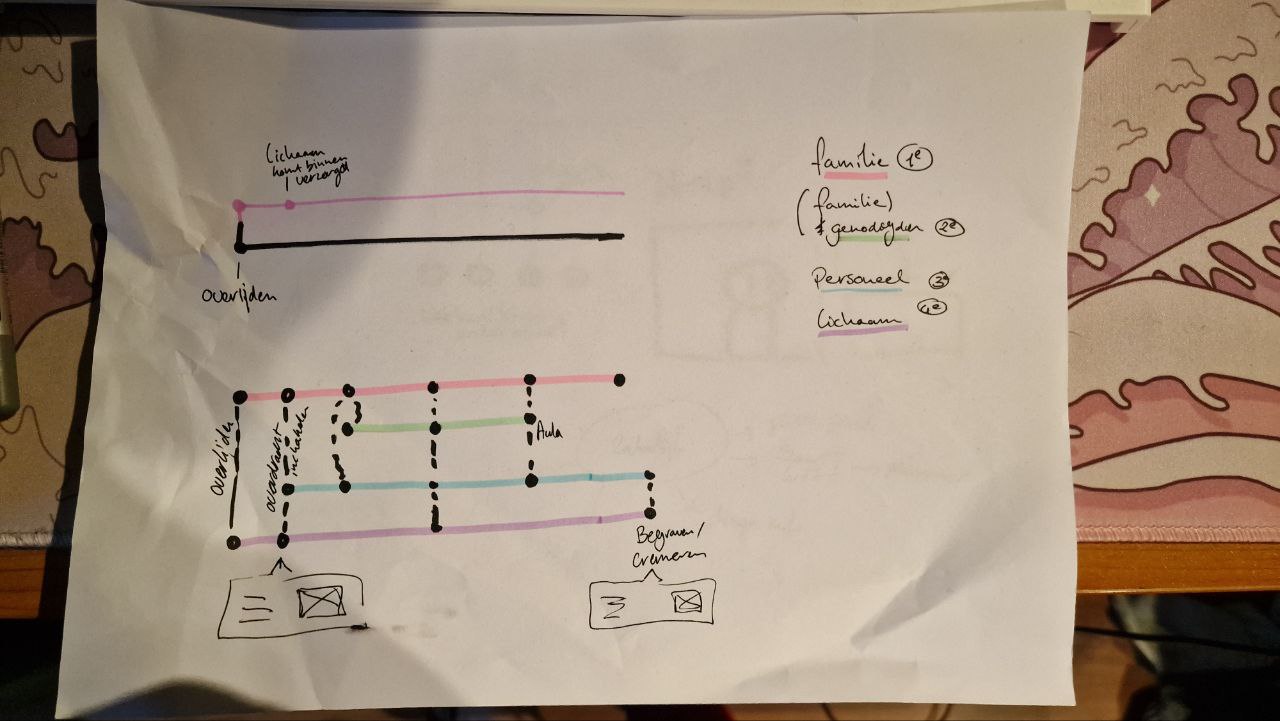 Lichaam
komt binnen
/ verzorgd
overlijden
familie 1e
(familie)
& genodigden 2e
Personeel 3e
Lichaam 4e
overlijden
overdracht
inschakelen
Aula
Begraven/
Cremeren